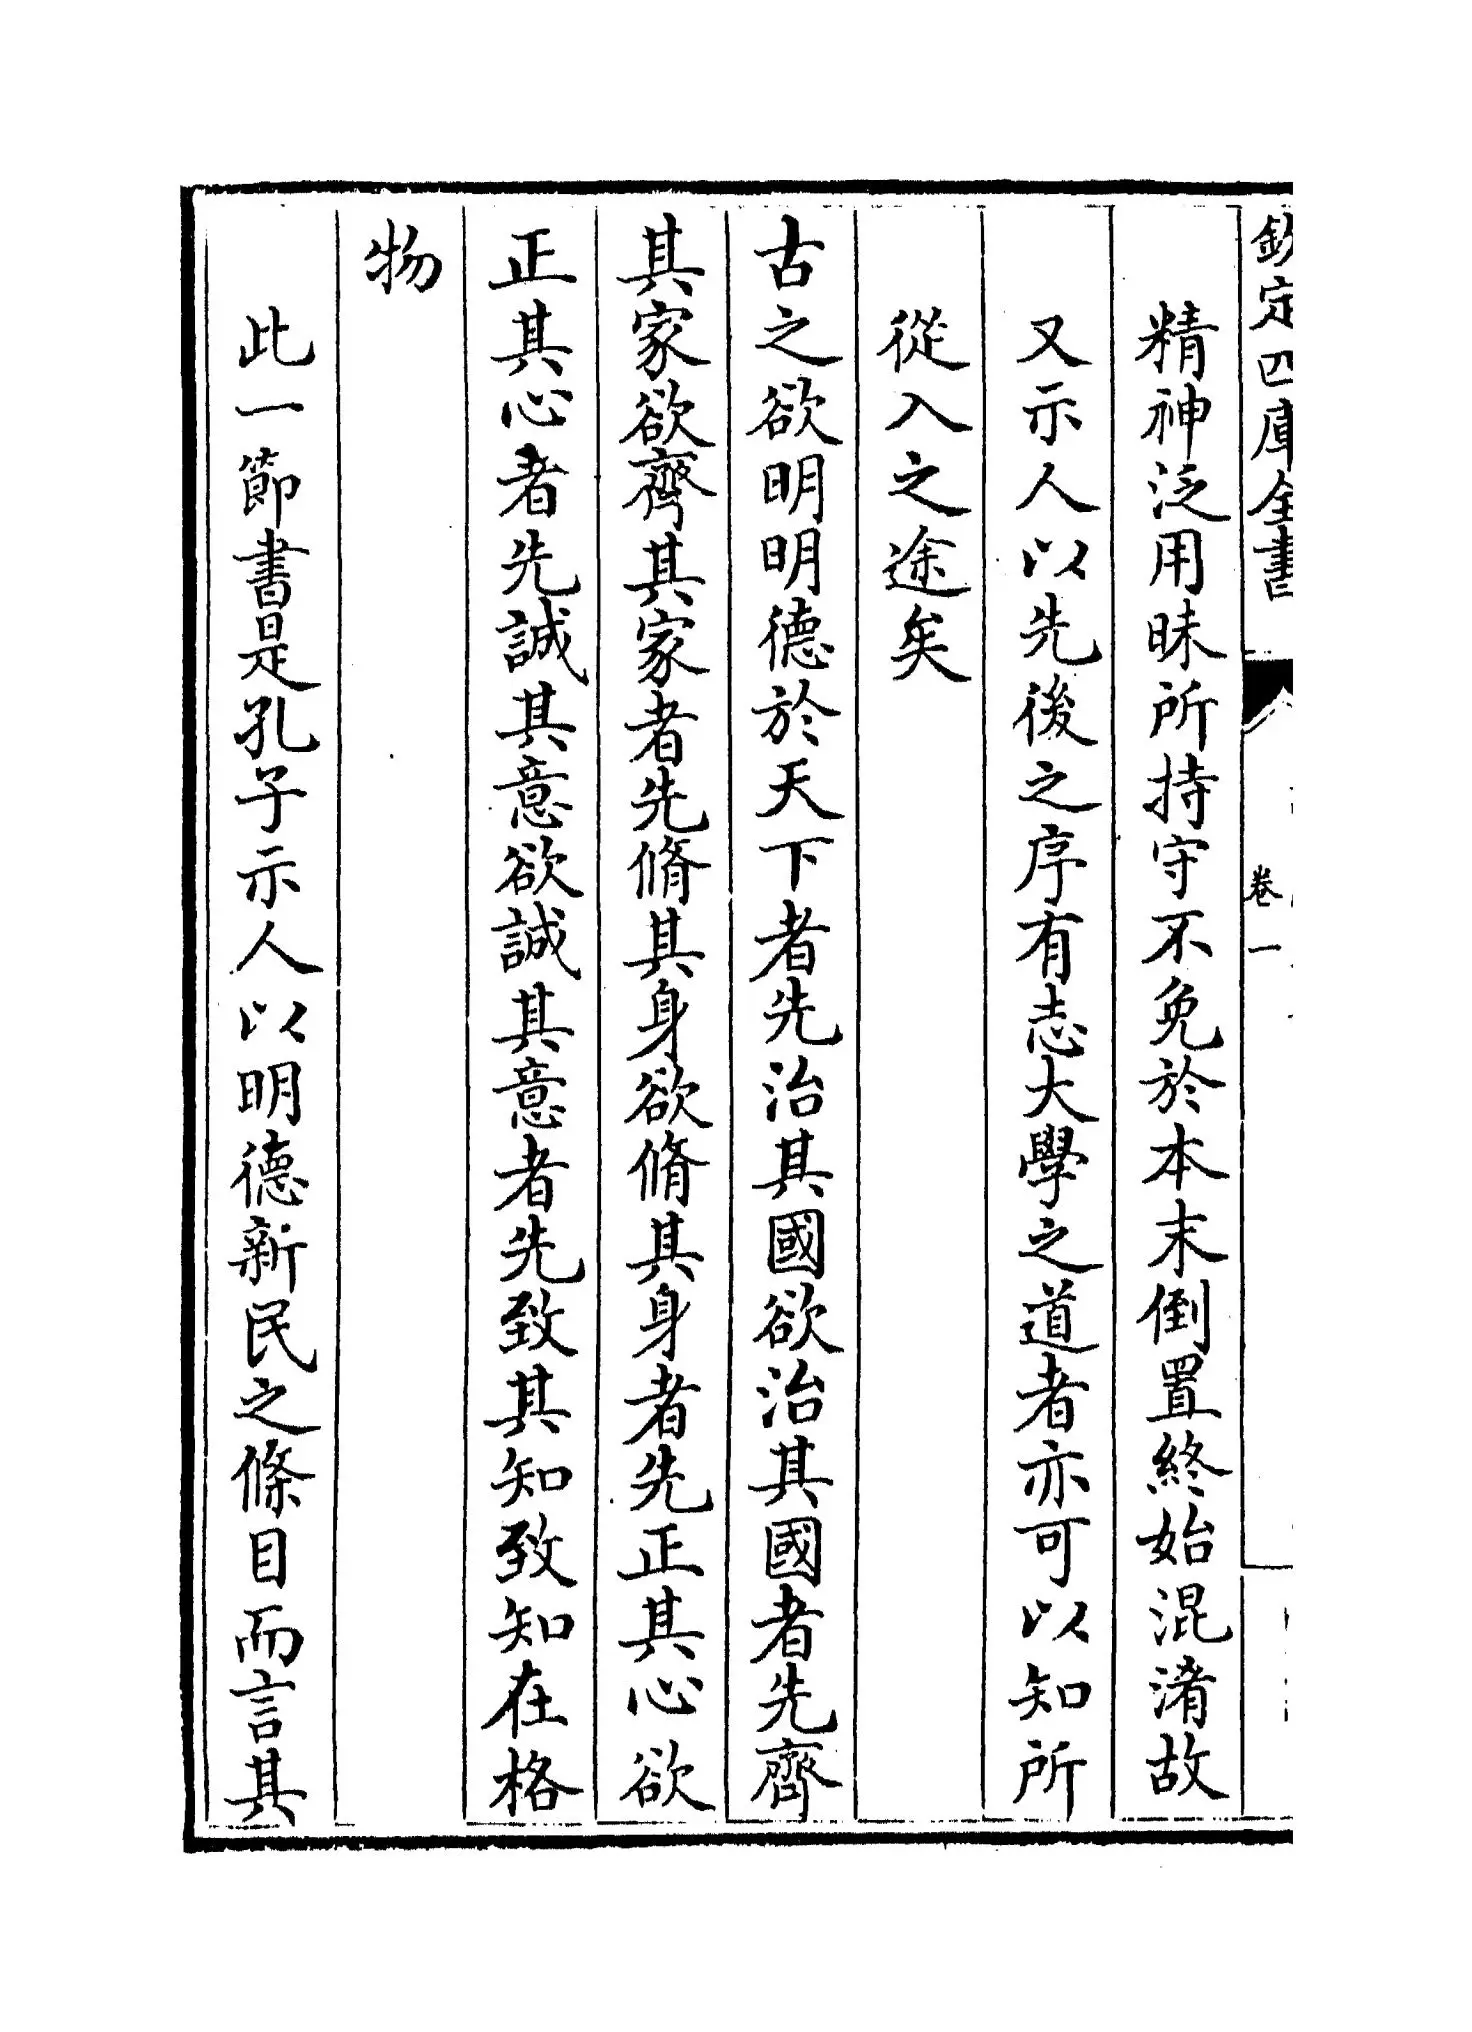 欽定四庫全書
卷一
精神泛用昧所持守不免於本末倒置終始混淆故
又示人以先後之序有志大學之道者亦可以知所
從入之途矣
古之欲明明德於天下者先治其國欲治其國者先齊
其家欲齊其家者先脩其身欲脩其身者先正其心欲
正其心者先誠其意欲誠其意者先致其知致知在格
物
此一節書是孔子示人以明德新民之條目而言其